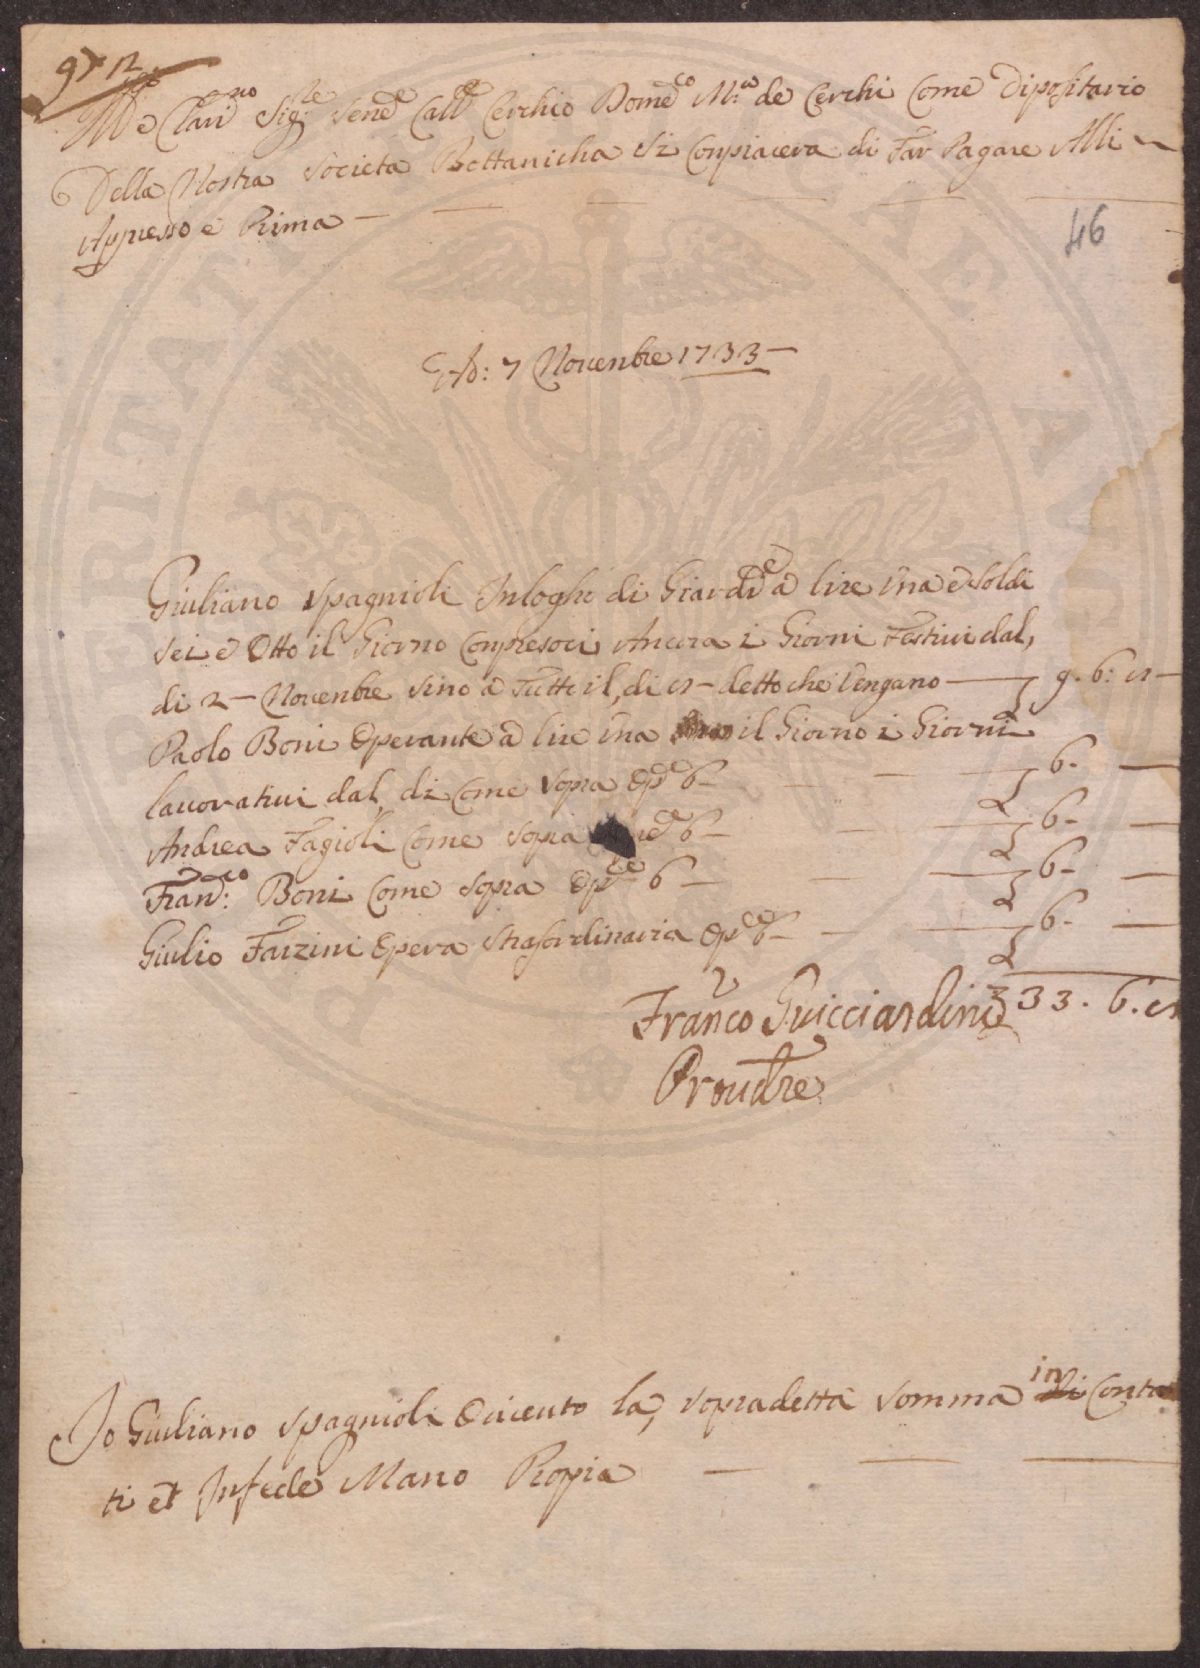 97 12
Ill.mo e Clari.mo Sig.re Sen.e Call.e Cerchio Dome.co M.a de Cerchi Come Dipositario
Della Nostra Societa Bottanicha Si Conpiacera di Far Pagare Alli
Appresso e Prima
46
Ad: 7 Novenbre 1733
Giuliano Spagnioli Inloghi di Giard.e a lire una e Soldi
Sei e Otto il Giorno Conpresoci Ancora i Giorni Festivi dal,
di 2 Novenbre Sino a Tutto il, di detto che Vengano 9. 6:
Paolo Boni Operante a lire una il Giorno i Giorni
lavorativi dal, di Come Sopra Op.e 6 6
Andrea Fagioli Come Sopra 6 6
Fran.co Boni Come Sopra Op.e 6 6
Giulio Farzini Opera Strasordinaria Op.e 6 6
33. 6.
Fran.co Guicciardini
Prouu.re
Io Giuliano Spagnioli O riceuto la, sopradetta Somma in Contan
ti et Infede Mano Propia